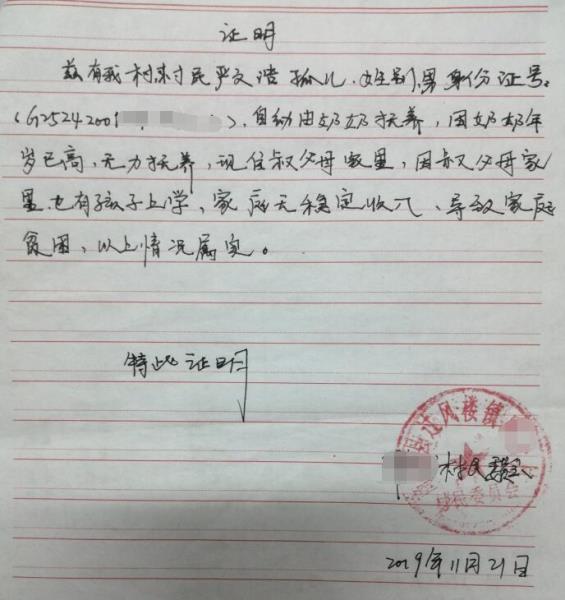 证明
兹有我村村民严文浩孤儿,姓别男身份证号:
(G25242001),自幼由奶奶抚养,因奶奶年
岁已高,无力抚养,现住叔父母家里,因叔父母家
里也有孩子上学,家庭无稳定收入、导致家庭
贫困,以上情况属实。
特此证明
迁风楼镇
村民委会
村民委员会
2019年11月21日